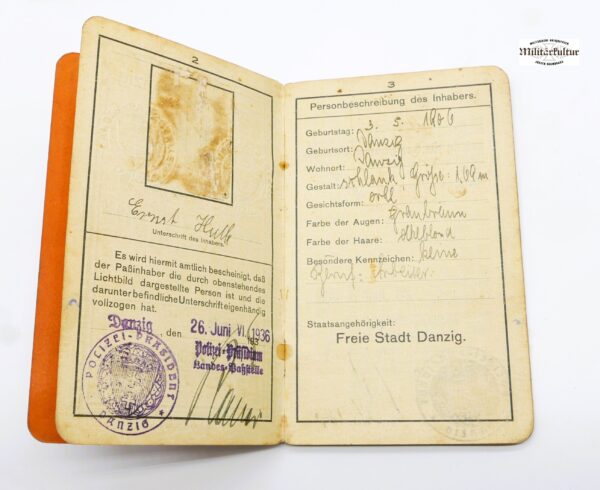 2
Ernst Huth
Unterschrift des Inhabers.
Es wird hiermit amtlich bescheinigt, daß
der Paßinhaber die durch obenstehendes
Lichtbild dargestellte Person ist und die
darunter befindliche Unterschrift eigenhändig
vollzogen hat.
Danzig, den 26. Juni VI. 1936
Polizei-Präsidium
Landes-Paßstelle
POLIZEI-PRÄSIDENT
DANZIG
3
Personbeschreibung des Inhabers.
Geburtstag: 3. 5. 1906
Geburtsort: Danzig
Wohnort: Danzig
Gestalt: schlank Größe: 1,69 m
Gesichtsform: oval
Farbe der Augen: Graubraun
Farbe der Haare: blond
Besondere Kennzeichen: keine
Beruf: Arbeiter.
Staatsangehörigkeit:
Freie Stadt Danzig.
Militärkultur